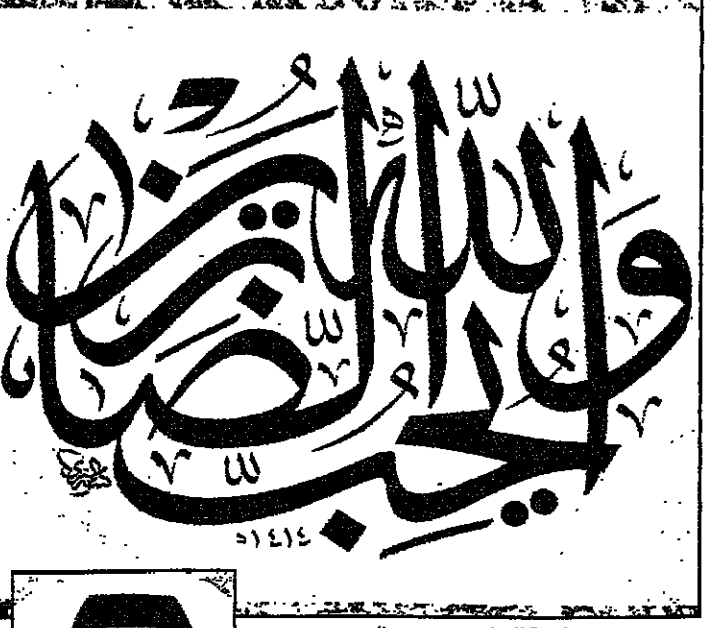 وَاللّٰهُ يُحِبُّ الصَّابِرِينَ
١٤١٤هـ